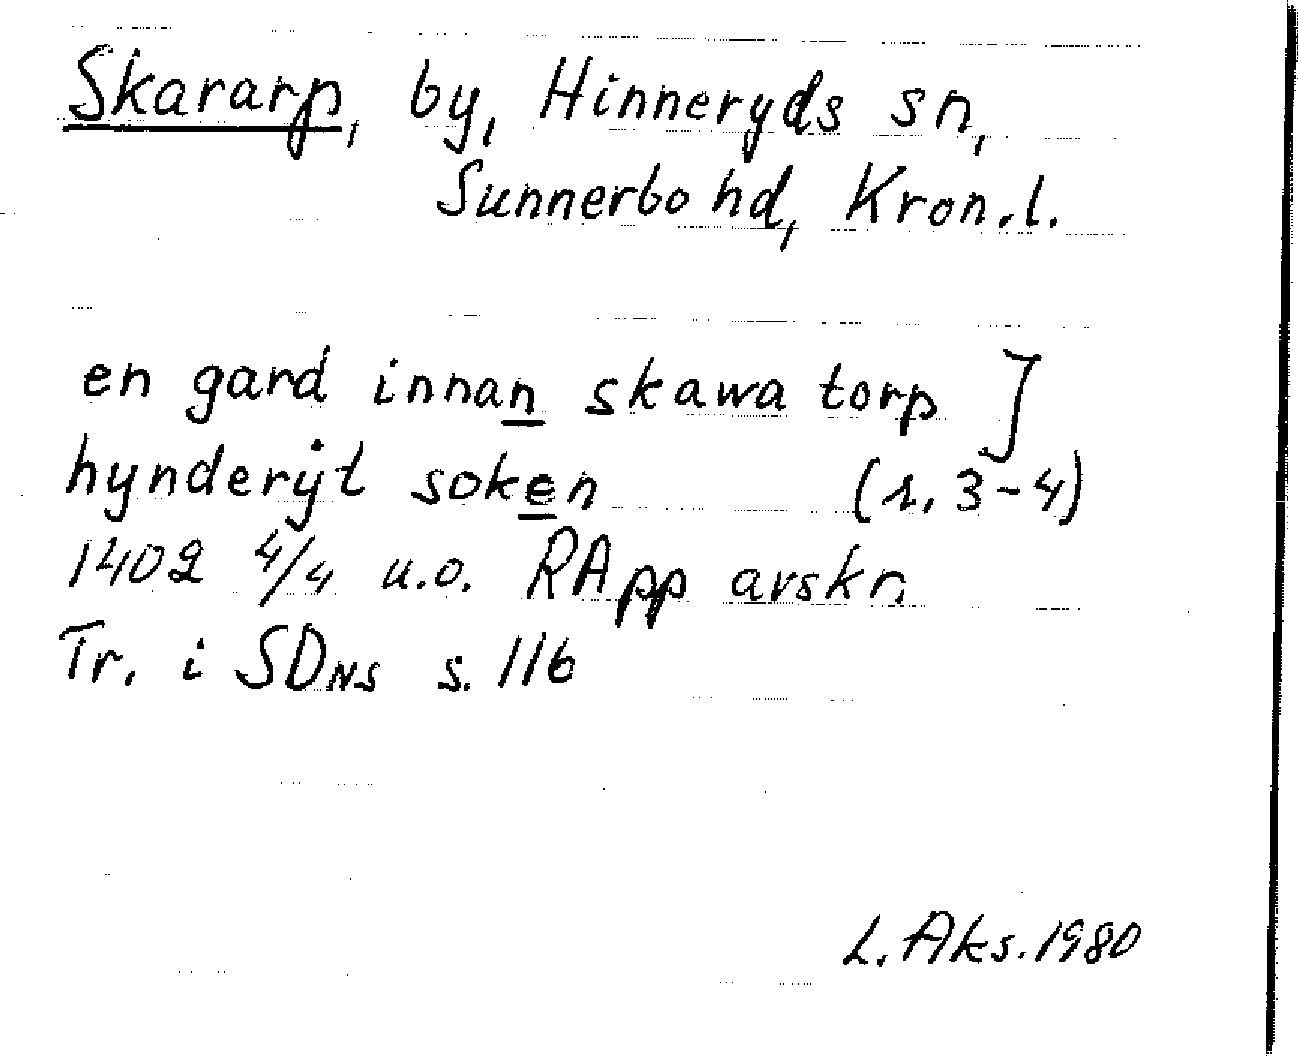 Skararp, by, Hinneryds sn,
Sunnerbo hd, Kron.l.
en gard innan skawa torp ]
hynderÿt soken (r. 3-4)
1402 4/4 u.o. RApp avskr.
Tr. i SDNS s. 116
L. Aks. 1980